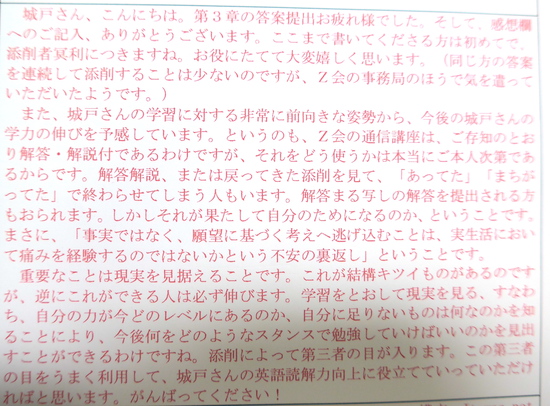 城戸さん、こんにちは。第3章の答案提出お疲れ様でした。そして、感想欄
へのご記入、ありがとうございます。ここまで書いてくださる方は初めてで、
添削者冥利につきますね。お役にたてて大変嬉しく思います。（同じ方の答案
を連続して添削することは少ないのですが、Ｚ会の事務局のほうで気を遣って
いただいたようです。）
また、城戸さんの学習に対する非常に前向きな姿勢から、今後の城戸さんの
学力の伸びを予感しています。というのも、Ｚ会の通信講座は、ご存知のとお
り解答・解説付であるわけですが、それをどう使うかは本当にご本人次第であ
るからです。解答解説、または戻ってきた添削を見て、「あってた」「まちが
ってた」で終わらせてしまう人もいます。解答まる写しの解答を提出される方
もおられます。しかしそれが果たして自分のためになるのか、ということです。
まさに、「事実ではなく、願望に基づく考えへ逃げ込むことは、実生活におい
て痛みを経験するのではないかという不安の裏返し」ということです。
重要なことは現実を見据えることです。これが結構キツイものがあるのです
が、逆にこれができる人は必ず伸びます。学習をとおして現実を見る、すなわ
ち、自分の力が今どのレベルにあるのか、自分に足りないものは何なのかを知
ることにより、今後何をどのようなスタンスで勉強していけばいいのかを見出
すことができるわけですね。添削によって第三者の目が入ります。この第三者
の目をうまく利用して、城戸さんの英語読解力向上に役立てていっていただけ
ればと思います。がんばってください！